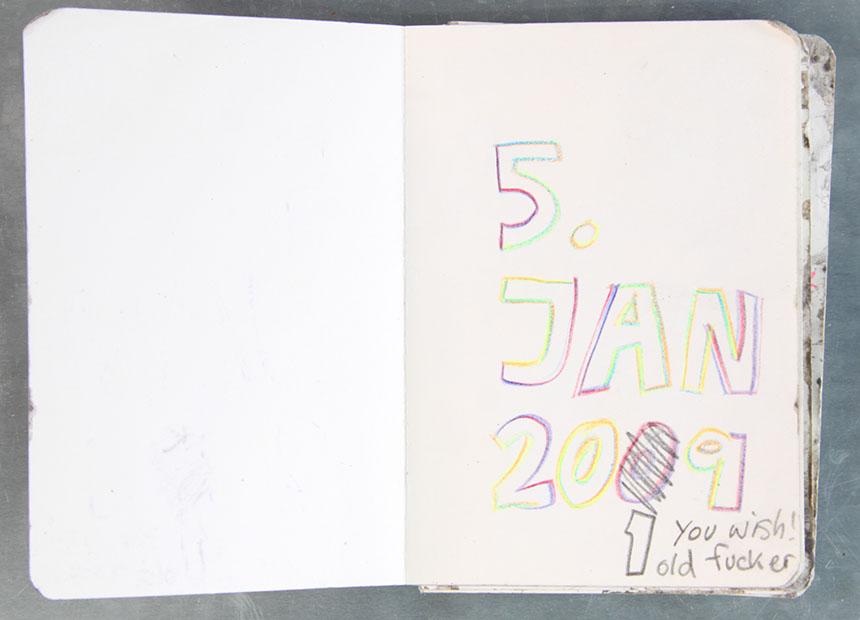 5.
JAN
2009
1 You wish!
old fucker